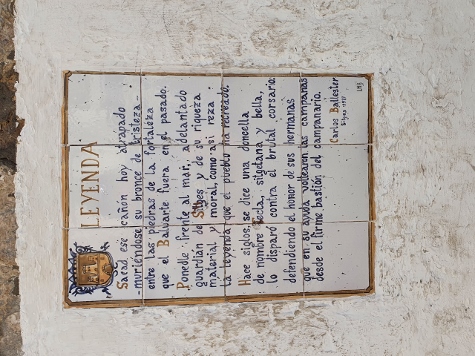 LEYENDA
Sacad ese cañon hoy atrapado
-muriéndose su bronce de tristeza-
entre las piedras de la fortaleza
que el Baluarte fuera en el pasado.
Ponedle frente al mar, adelantado
guardian de Sitges y de su riqueza
material y moral, como asi reza
la leyenda que el pueblo ha recreado.
Hace siglos, se dice una doncella
de nombre Tecla, sitgetana y bella,
lo disparó contra el brutal corsario.
defendiendo el honor de sus hermanas
que en su ayuda voltearon las campanas
desde el firme bastión del campanario.
Carlos Ballester
Sitges